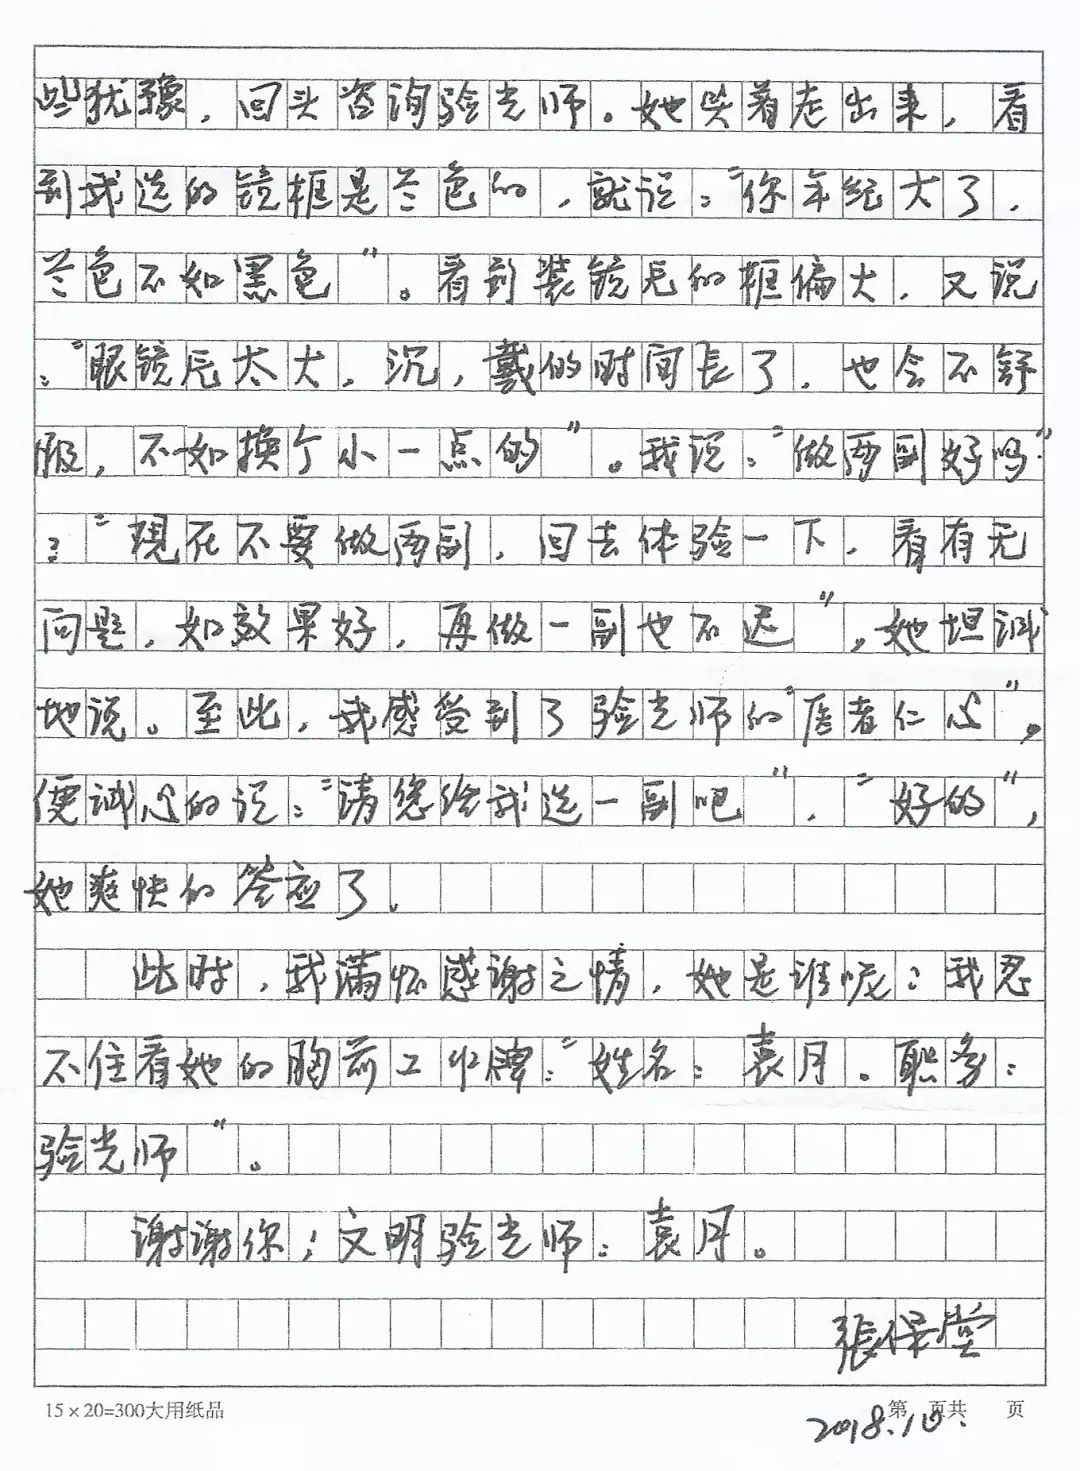 些犹豫，回头咨询验光师。她笑着走出来，看
到我选的镜框是兰色的，就说：“你年纪大了，
兰色不如黑色”。看到装镜片的框偏大，又说
：“眼镜片太大，沉，戴的时间长了，也会不舒
服，不如换个小一点的”。我说：“做两副好吗”
：“现在不要做两副，回去体验一下，看有无
问题，如效果好，再做一副也不迟”，她坦诚
地说。至此，我感受到了验光师的“医者仁心”，
便诚心的说：“请您给我选一副吧”，“好的”，
她爽快的答应了。
此时，我满怀感谢之情，她是谁呢：我忍
不住看她的胸前工作牌：“姓名：袁月。职务：
验光师”。
谢谢你；文明验光师：袁月。
張保堂
15×20=300大用纸品 第 页共 页
2018.10.